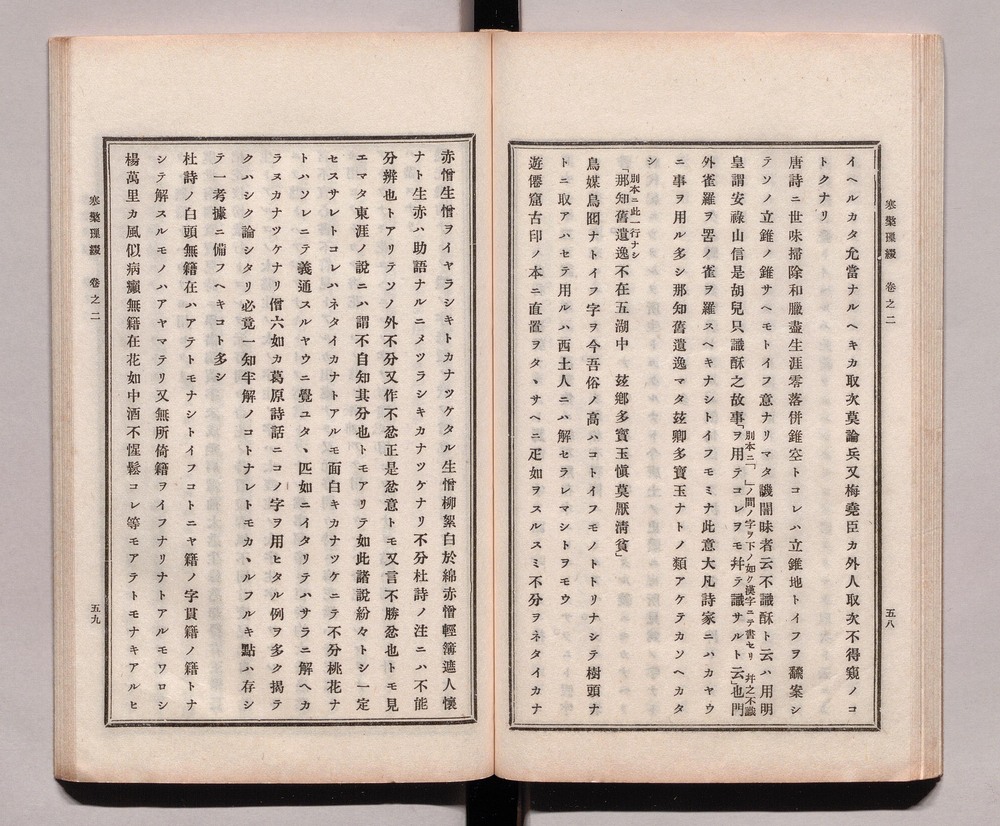 寒檠璅綴 巻之二
五八
イヘルカタ允當ナルヘキカ取次莫論兵又梅堯臣カ外人取次不得窺ノコ
トクナリ
唐詩ニ世味掃除和臘盡生涯零落併錐空トコレハ立錐地トイフヲ飜案シ
テソノ立錐ノ錐サヘモトイフ意ナリマタ譏闇昧者云不識酥ト云ハ用明
皇謂安祿山信是胡兒只識酥之故事「ヲ用テコレヲモ幷テ譏サルト云」也門
別本ニ「 」ノ間ノ字ヲ下ノ如ク漢字ニテ書セリ 幷之不識
外雀羅ヲ罟ノ雀ヲ羅スヘキナシトイフモミナ此意大凡詩家ニハカヤウ
ニ事ヲ用ル多シ那知舊遺逸マタ玆卿多寶玉ナトノ類アケテカソヘカタ
シ
別本ニ此一行ナシ
「那知舊遺逸不在五湖中 玆鄕多寶玉愼莫厭淸貧」
鳥媒鳥圀ナトイフ字ヲ今吾俗ノ高ハコトイフモノトトリナシテ樹頭ナ
トニ取アハセテ用ルハ西土人ニハ解セラレマシトヲモウ
遊僊窟古印ノ本ニ直置ヲタヽサヘニ疋如ヲスルスミ不分ヲネタイカナ
赤憎生憎ヲイヤラシキトカナツケタル生憎柳絮白於綿赤憎輕簿遮人懷
ナト生赤ハ助語ナルニメツラシキカナツケナリ不分杜詩ノ注ニハ不能
分辨也トアリテソノ外不分又作不忿正是忿意トモ又言不勝忿也トモ見
エマタ東涯ノ說ニハ謂不自知其分也トモアリテ如此諸說紛々トシ一定
セスサレトコレハネタイカナトアルモ面白キカナツケニテ不分桃花ナ
トハソレニテ義通スルヤウニ覺ユタヽ匹如ニイタリテハサラニ解ヘカ
ラヌカナツケナリ僧六如カ葛原詩話ニコノ字ヲ用ヒタル例ヲ多ク揭テ
クハシク論シタリ必竟一知牢解ノコトナレトモカヽルフルキ點ハ存シ
テ一考據ニ備フヘキコト多シ
杜詩ノ白頭無籍在ハアテトモナシトイフコトニヤ籍ノ字貫籍ノ籍トナ
シテ解スルモノハアヤマテリ又無所倚籍ヲイフナリナトアルモワロシ
楊萬里カ風似病癲無籍在花如中酒不惺鬆コレ等モアテトモナキアルヒ
寒檠璅綴 巻之二
五九